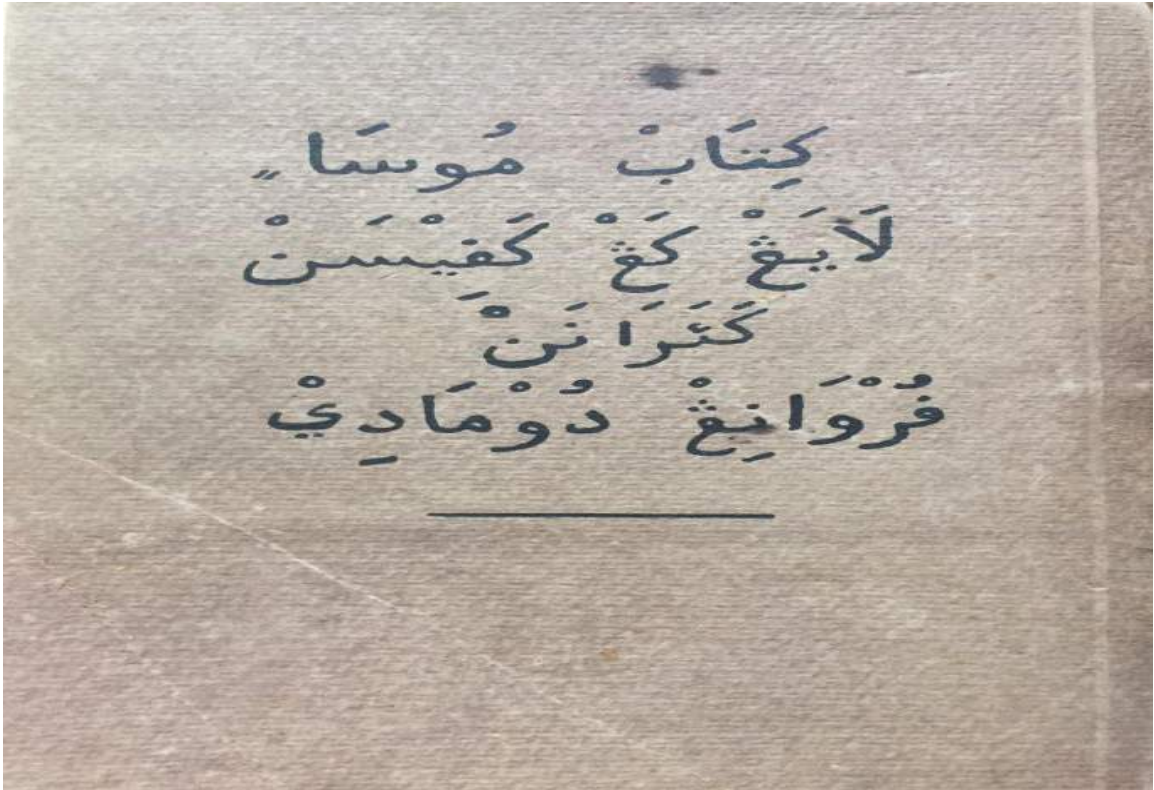 كِتَابْ مُوسَاٍ
لَايَڠْ كَڠْ كَفِيْسَنْ
كَتَرَانَنْ
فُرْوَانِڠْ دُوْمَادِيْ